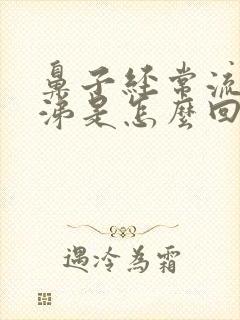 鼻子經常流
涕是怎麼回
遇冷為霜